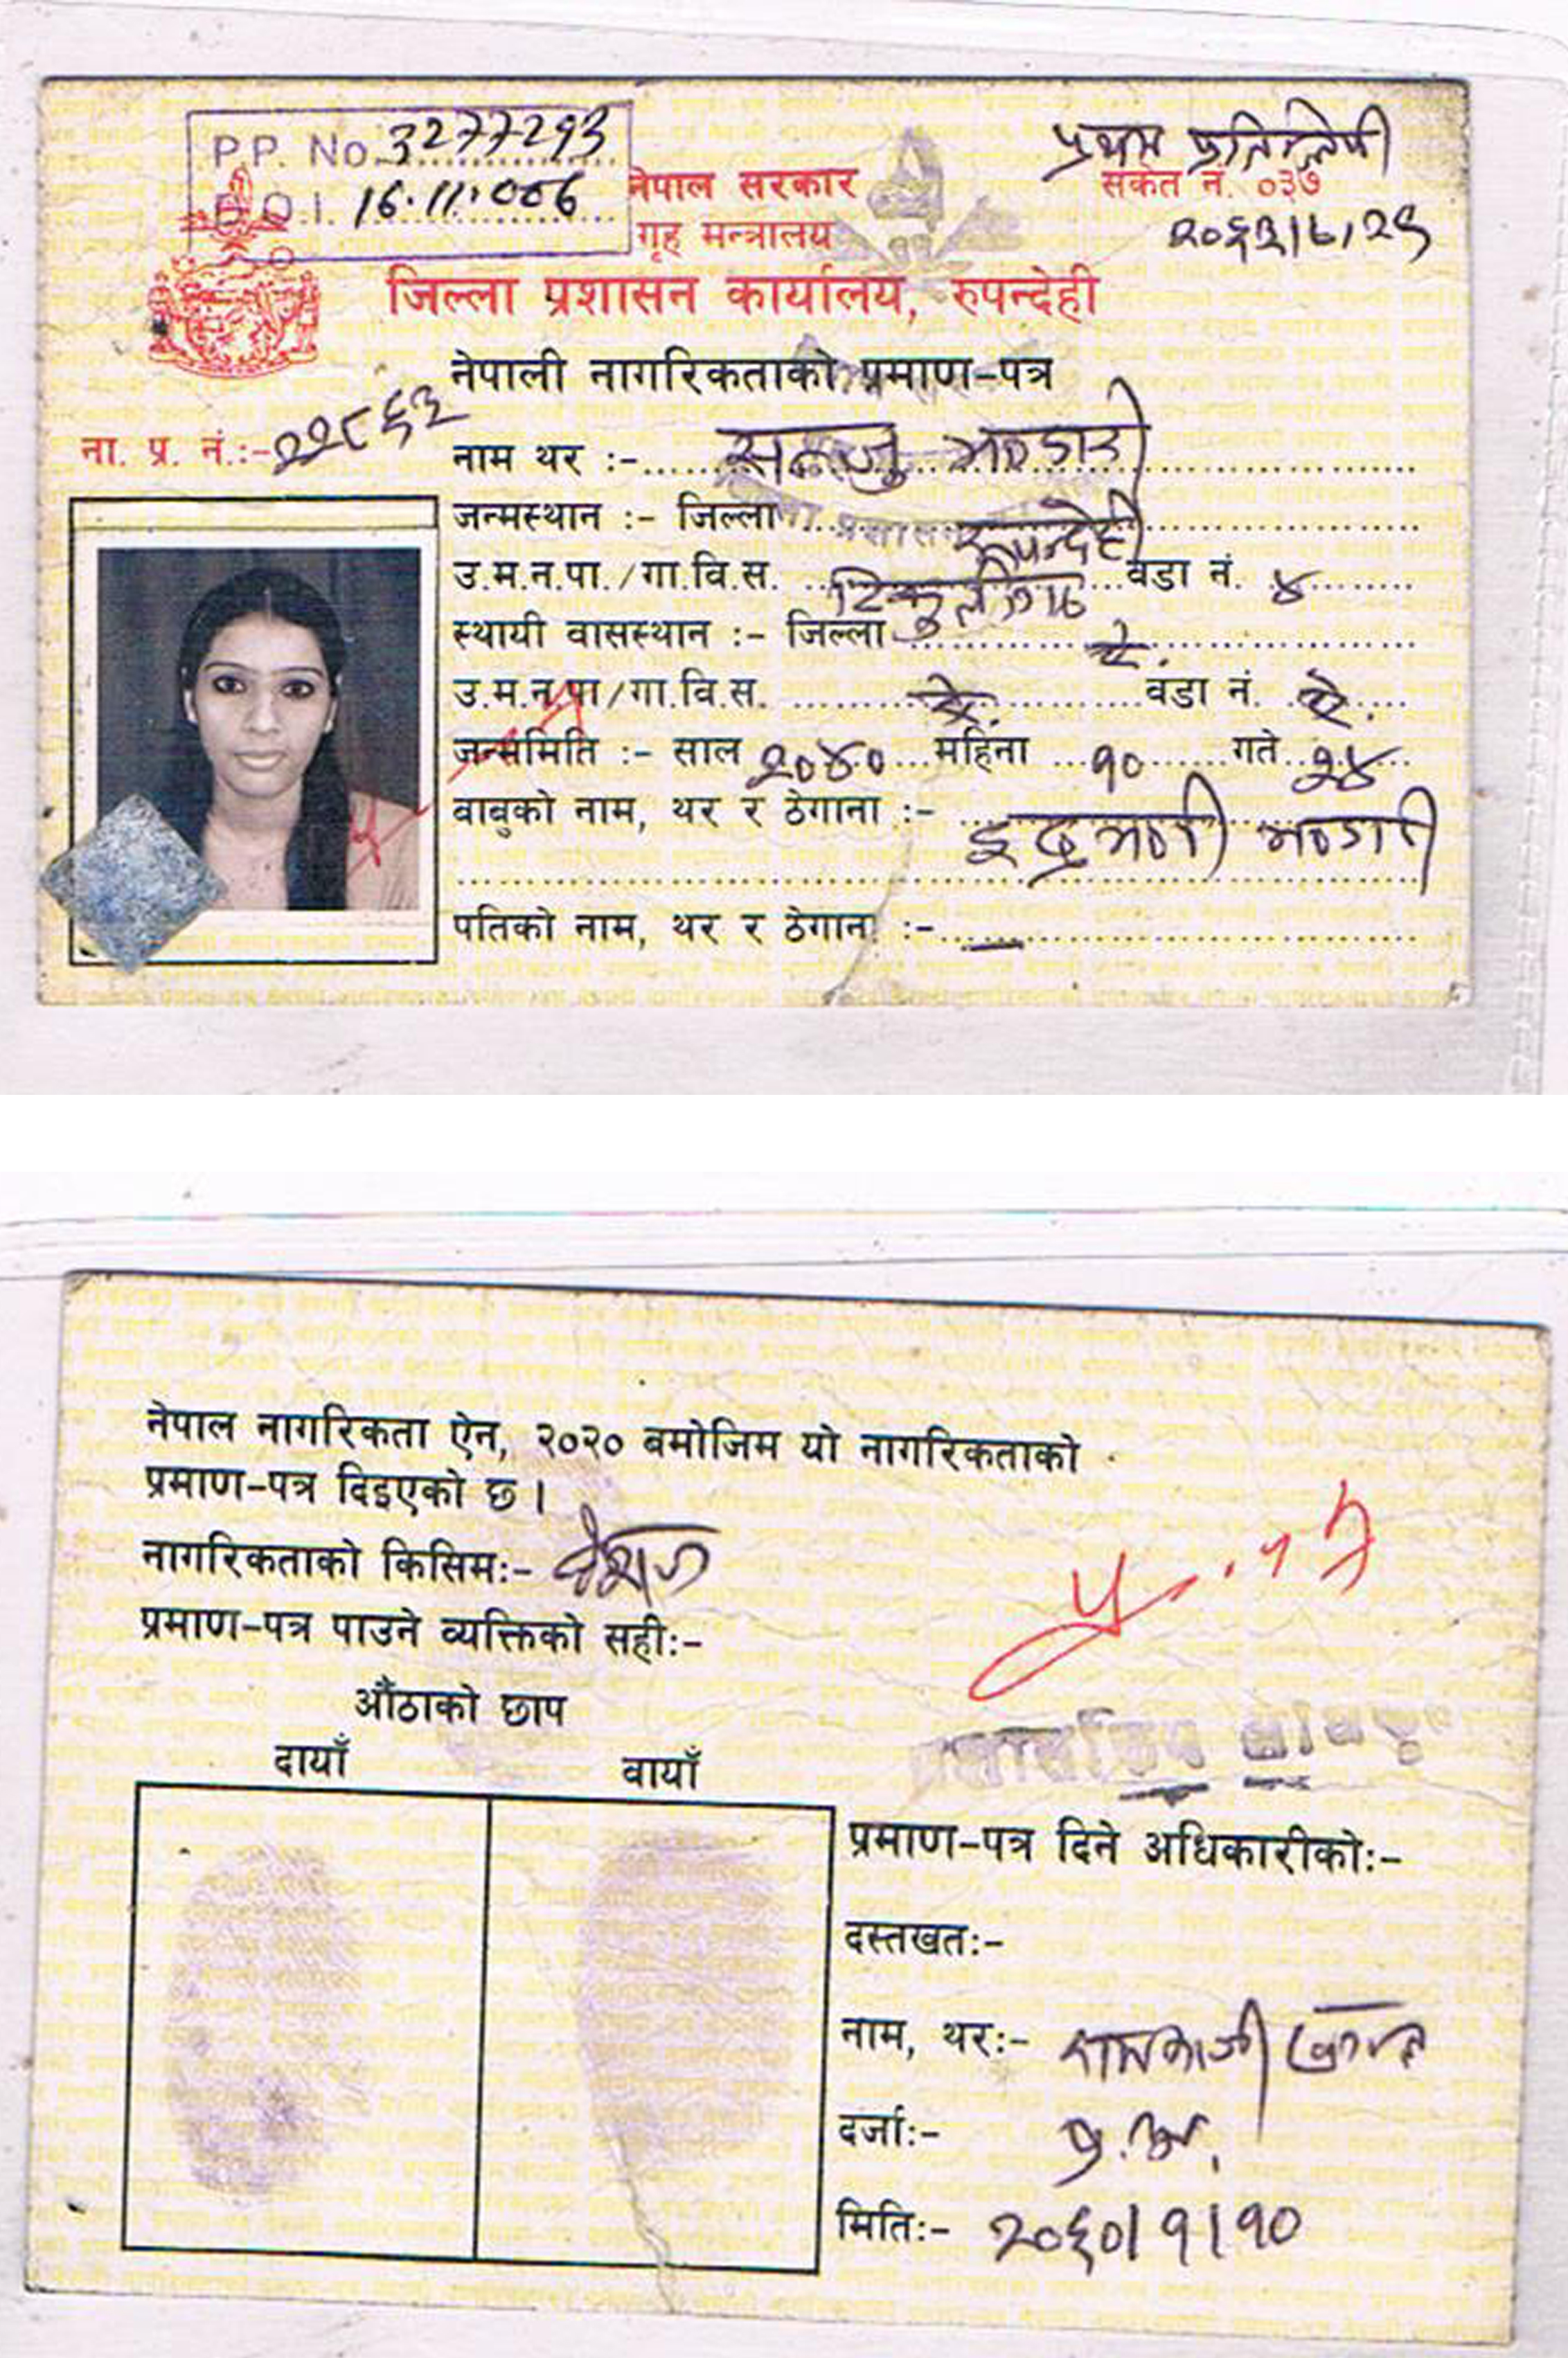 P.P. No. 3277293
D.O.I. 16.11.006
प्रथम प्रतिलिपी
नेपाल सरकार
संकेत नं. ०३७
गृह मन्त्रालय
२०६३|८|२९
जिल्ला प्रशासन कार्यालय, रुपन्देही
नेपाली नागरिकताको प्रमाण-पत्र
ना. प्र. नं.:- २२८६३
नाम थर :- सन्जु भण्डारी
जन्मस्थान :- जिल्ला रुपन्देही
उ.म.न.पा./गा.वि.स. टिकुलीगढ वडा नं. ४
स्थायी वासस्थान :- जिल्ला ऐ.
उ.म.न.पा/गा.वि.स. ऐ. वडा नं. ऐ.
जन्ममिति :- साल २०४० महिना १० गते २४
बाबुको नाम, थर र ठेगाना :- इन्द्रमणी भण्डारी
पतिको नाम, थर र ठेगाना :- —
नेपाल नागरिकता ऐन, २०२० बमोजिम यो नागरिकताको
प्रमाण-पत्र दिइएको छ।
नागरिकताको किसिम:- वंशज
प्रमाण-पत्र पाउने व्यक्तिको सही:-
औंठाको छाप
दायाँ वायाँ
प्रमाण-पत्र दिने अधिकारीको:-
दस्तखत:-
नाम, थर:- रामकाजी
दर्जा:- प्र.अ.
मिति:- २०६०|१|१०